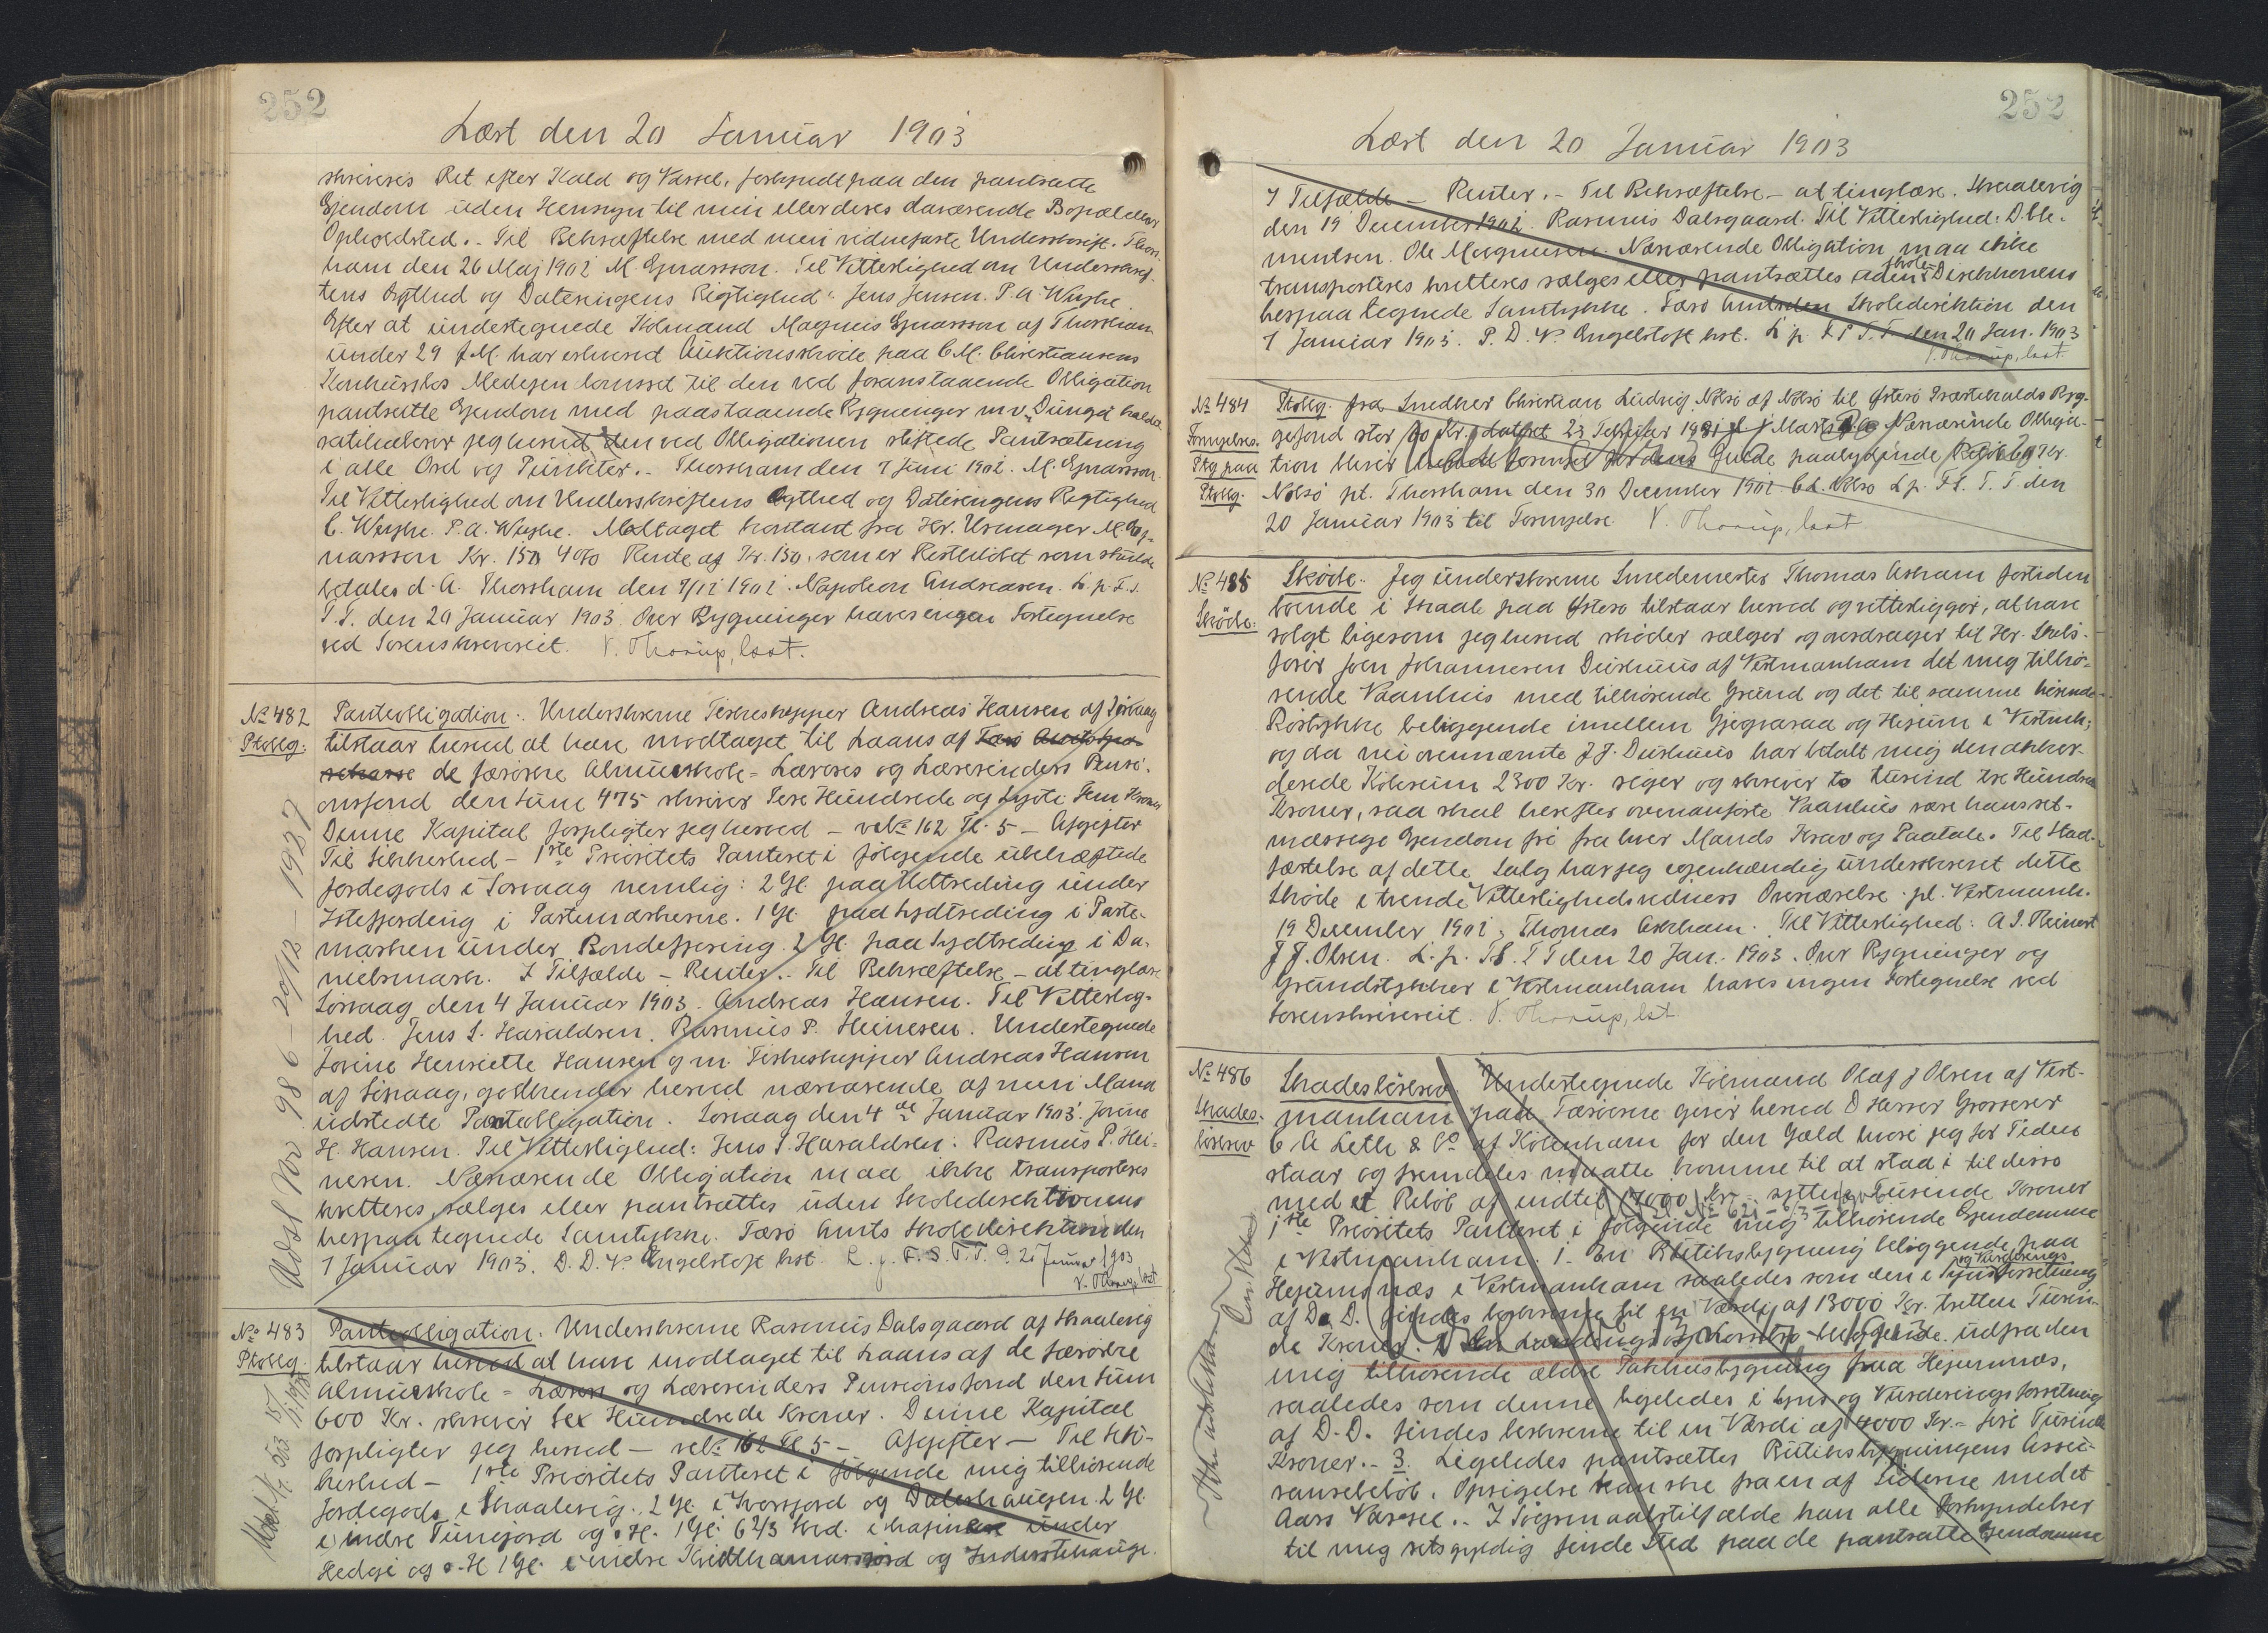 252
Læst den 20 Januar 1903
skriveres Ret efter Kald og Varsel, forkyndt paa den pantsatte
Ejendom uden Hensyn til min eller deres daværende Bopæl eller
Opholdsted. - Til Bekræftelse med min vidnefaste Underskrift. Thors-
havn den 26 Maj 1902 M. Ejnarsson. Til Vitterlighed om Underskrif-
tens Ægthed og Dateringens Rigtighed: Jens Jensen. P. A. Weyhe.
Efter at undertegnede Kobmand Magnus Ejnarsson af Thorshavn
under 29 f. M. har erhvervet Auktionsskøde paa C. M. Christiansens
Konkursbos
pantsatte Ejendom med paastaaende Bygninger m v
jeg herved den ved Obligationen stiftede Pantsætning
i alle Ord og Punkter. - Thorshavn den 7 Juni 1902. M. Ejnarsson.
Til Vitterlighed om Underskriftens Ægthed og Dateringens Rigtighed
C. Weyhe. P. A. Weyhe. Modtaget kontant fra Hr. Urmager M. Ej-
narsson Kr. 150 4% Rente af Kr. 150, som er Restbeløbet som skulde
betales d. A. Thorshavn den 7/12 1902. Napoleon Andreasen. L. p. F. S.
T. T. den 20 Januar 1903. Over Bygninger haves ingen Fortegnelse
ved Sorenskriveriet. V. Thorup, kst.
No 482
Ptoblg.
Panteobligation. Underskrevne Fiskeskipper Andreas Hansen af Sörvaag
tilstaar herved at have modtaget til Laans af Færö Amts
de færöiske Almueskole-Læreres og Lærerinders Pensi-
onsfond den Sum 475 skriver Fire Hundrede og Sytti Fem Kroner
Denne Kapital forpligter jeg herved - vel No 162 Fl. 5 - Afgifter
Til Sikkerhed - 1ste Prioritets Panteret i følgende ubehæftede
Jordegods i Sorvaag nemlig: 2 Gl. paa Udtreding under
i Partemarkerne. 1 Gl. paa Sydtreding i Parte-
marken under Bondefjering. 2 Gl. paa Sydtreding i Da-
nielsmark. I Tilfælde - Renter. - Til Bekræftelse - at tinglæse
Sörvaag den 4 Januar 1903. Andreas Hansen. Til Vitterlig-
hed. Jens S. Haraldsen. Rasmus P. Heinesen. Undertegnede
Jovine Henriette Hansen g m. Fiskeskipper Andreas Hansen
af Sörvaag, godkender herved nærværende af min Mand
udstedte Panteobligation. Sorvaag den 4de Januar 1903. Jovine
H. Hansen. Til Vitterlighed: Jens S. Haraldsen. Rasmus P. Hei-
nesen. Nærværende Obligation maa ikke transporteres
kvitteres, sælges eller pantsættes uden Skoledirektionens
herpaa tegnede Samtykke. Færö Amts Skoledirektion den
7 Januar 1903. D. D. V. Engelstoft kst. L. p. F. S. T. T. d. 20 Januar 1903
V. Thorup, kst
Udsl No 986 - 20/12 - 1927
No 483
Ptoblg.
Panteobligation. Underskrevne Rasmus Dalsgaard af Skaalevig
tilstaar herved at have modtaget til Laans af de færöiske
Almueskole-Lærere og Lærerinders Pensionsfond den Sum
600 Kr. skriver Sex Hundrede Kroner. Denne Kapital
forpligter jeg herved - vel No 162 Fl 5 - Afgifter - Til Sik-
kerhed - 1ste Prioritets Panteret i følgende mig tilhörende
Jordegods i Skaalevig. 2 Gl. i og 2 Gl.
i indre Tunejord og o. H. 1 Gl. 6 2/3 Skd. i under
Hedge og o. H 1 Gl. i indre og
252
Læst den 20 Januar 1903
I Tilfælde - Renter. - Til Bekræftelse - at tinglæse. Skaalevig
den 19 December 1902. Rasmus Dalsgaard. Til Vitterlighed: D. Cle-
mentsen. Ole Magnussen. Nærværende Obligation maa ikke
transporteres kvitteres sælges eller pantsættes uden Skole Direktionens
herpaa tegnede Samtykke. Færö Amts Skoledirektion den
7 Januar 1903. P. D. V. Engelstoft kst. L. p. F. S. T. T. den 20 Jan. 1903
V. Thorup, kst.
No 484
Fornyelses-
Ptg paa
Ptoblg.
Ptoblg. fra Snedker Christian Ludvig Nolsö af Nolsö til Østerö Præstekalds Byg-
gefond stor Kr. dateret 23 Februar Nærværende Obliga-
tion bliver herved fornyet for dens Gælde paalydende
Nolsö pt. Thorshavn den 30 December 1902 C. L. Nolsö L. p. F. S. T. T. den
20 Januar 1903 til Fornyelse. V. Thorup, kst.
No 485
Sköde.
Sköde. Jeg underskrevne Smedemester Thomas Askham fortiden
boende i Skaale paa Østerö tilstaar herved og vitterliggör, at have
solgt ligesom jeg herved sköder sælger og overdrager til Hr. Skibs-
förer Joen Johannesen Duruhuus af Vestmanhavn det mig tilhö-
rende Vaanhuis med tilhörende Grund og det til samme hörende
beliggende imellem Gjegvaraa og i Vestmh;
og da nu ovennævnte J. J. Duruhuus har betalt mig den akkor-
derede Köbesum 2300 Kr. siger og skriver to tusind tre Hundrede
Kroner, saa skal herefter ovenanförte Vaanhus være hans ret-
mæssige Ejendom fri fra hver Mands Krav og Paatale. Til Stad-
fæstelse af dette Salg har jeg egenhændig underskrevet dette
Sköde i tvende Vitterlighedsvidners Overværelse. pt. Vestmanh.
19 December 1902. Thomas Askham. Til Vitterlighed: A. I. Reinert
J. J. Olsen. L. p. F. S. T. T den 20 Jan. 1903. Over Bygninger og
Grundstykker i Vestmanhavn haves ingen Fortegnelse ved
Sorenskriveriet. V. Thorup, kst
No 486
Skades-
lösbrev
Skadeslösbrev. Undertegnede Köbmand Olaf J Olsen af Vest-
manhavn paa Færöerne giver herved D Herrer Grosserer
C A Leth & Co. af Köbenhavn for den Gæld hvori jeg for Tiden
staar og fremdeles maatte komme til at staa i til disse
med et Belöb af indtil 17000 Kr. - sytten Tusende Kroner
1ste Prioritets Panteret i følgende mig tilhörende Ejendomme
i Vestmanhavn: 1. En Butiksbygning beliggende paa
Hejumsnæs i Vestmanhavn saaledes som den i Syns og Vurderings Forretning
af D. D. findes beskreven til en Værdi af 13000 Kr. tretten Tusin-
de Kroner. 2 udfra den
mig tilhörende ældre Pakhusbygning paa Hejumnæs,
saaledes som denne ligeledes i Syns og Vurderingsforretning
af D. D. findes beskreven til en Værdi af 4000 Kr. - fire Tusinde
Kroner. - 3. Ligeledes pantsættes Butiksbygningens Assu-
rancebelöb. Opsigelse kan ske fra en af Siderne med et
Aars Varsel. - I Sögsmaalstilfælde kan alle Forkyndelser
til mig retsgyldig finde Sted paa de pantsatte Ejendomme